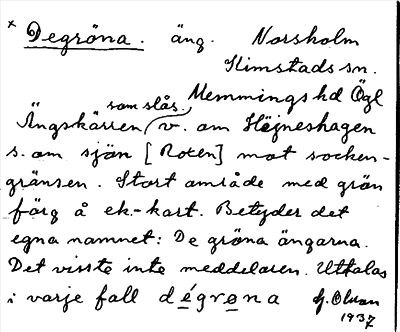 × Degröna. äng. Norsholm
Kimstads sn.
Memmings hd Ögl
som slås.
Ängskärren v. om Höjneshagen
s. om sjön [Roxen] mot socken-
gränsen. Stort område med grön
färg å ek.-kart. Betyder det
egna namnet: De gröna ängarna.
Det visste inte meddelaren. Uttalas
i varje fall dégrøna G. Olson
1937